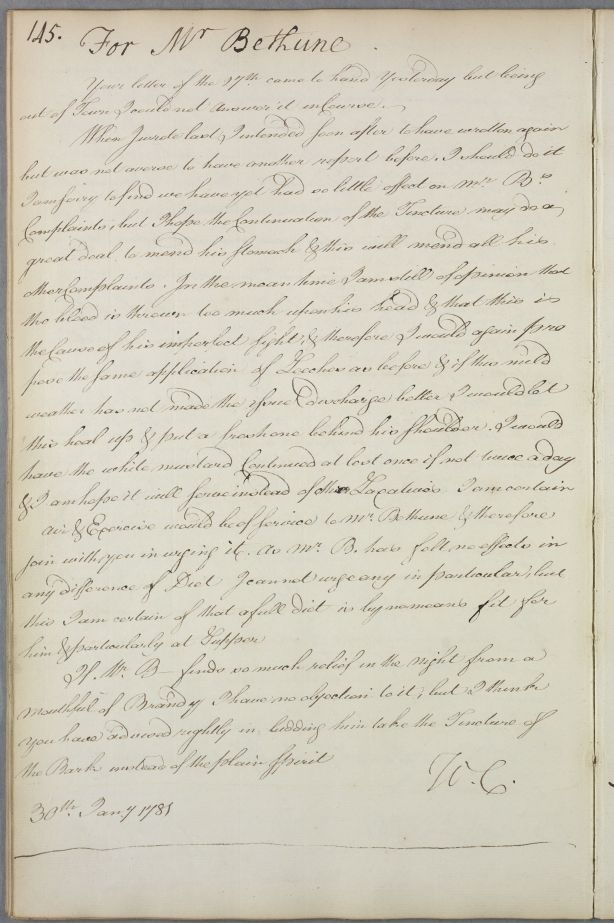 145.
For Mr Bethune
Your letter of the 27th came to hand Yesterday but being
out of Town I could not answer'd in Course.
When I wrote last I intended soon after to have wrotten again
but was not averse to have another report before I should do it
I am sorry to find we have yet had so little effect on Mr Bs
Complaints, but I hope the Continuation of the Tincture may do a
great deal to mend his stomach & this will mend all his
other Complaints. In the mean time I am still of opinion that
the blood is thrown too much upon his head & that this is
the Cause of his imperfect sight, & therefore I would again pro
pose the same application of Leeches as before & if this mild
weather has not made the issue discharge better I would let
this heal up & put a fresh one behind his Shoulder. I would
have the white mustard Continued at lest once if not twice a day
& I am hope it will serve instead of other Laxatives I am certain
Air & Exercise would be of service to Mr. Bethune & therefore
join with you in urging it. As Mr. B. has felt no effects in
any difference of Diet I cannot urge any in particular, but
this I am certain of that a full diet is by no means fit for
him & particularly at Supper
If Mr. B- finds so much relief in the night from a
mouthful of Brandy I have no objection to it, but I think
you have advised rightly in bidding him take the Tincture of
the Bark instead of the plain Spirit
W. C.
30th Jany 1781